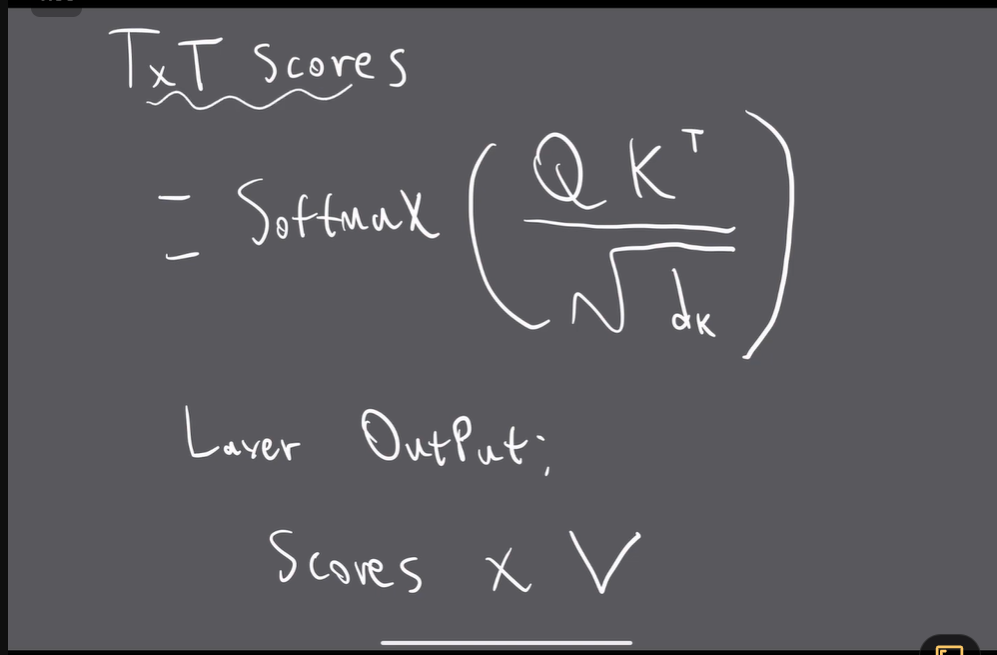 TxT Scores
= Softmax ( Q K^T / √dK )
Layer Output:
Scores x V